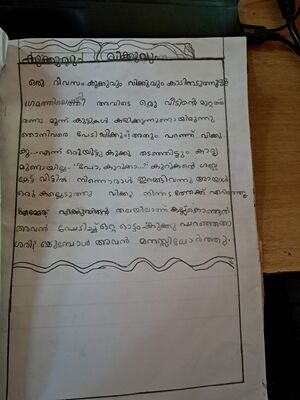 കുക്കുവും വിക്കുവും
ഒരു ദിവസം കുക്കുവും വിക്കുവും കാടിനടുത്തുള്ള
ഗ്രാമത്തിലെത്തി അവിടെ ഒരു വീടിന്റെ മുറ്റത്ത്
രണ്ടു മൂന്ന് കുട്ടികൾ കളിക്കുന്നുണ്ടായിരുന്നു
ഞാനിവരെ പേടിപ്പിക്കും അതും പറഞ്ഞ് വിക്കു
കൂ... എന്ന് ഒരിയിട്ടു കുക്കു തടഞ്ഞിട്ടും കാര്യ
മുണ്ടായില്ല. "പോ, കുറുക്കാ..." കുറുക്കന്റെ ശബ്ദം
കേട്ട് വീട്ടിൽ നിന്നൊരാൾ ഇറങ്ങി വന്നു അയാൾ
ഒരു കല്ലെടുത്തു വിക്കു നിന്നിടത്തേക്ക് എറിഞ്ഞു.
വിക്കുവിന്റെ തലയിലാണ് കല്ല് കൊണ്ടത്
അവൻ പേടിച്ച് ഒറ്റ ഓട്ടം കുക്കു പറഞ്ഞതാ
ശരി അവൻ മനസ്സിലോർത്തു.